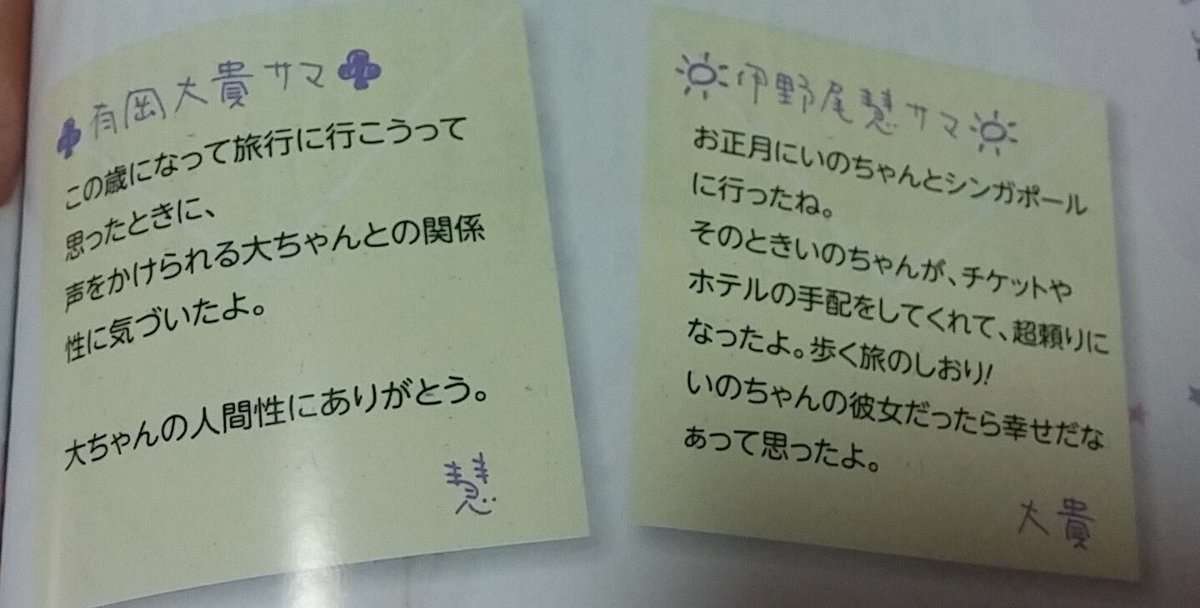 有岡大貴サマ
この歳になって旅行に行こうって
思ったときに、
声をかけられる大ちゃんとの関係
性に気づいたよ。
大ちゃんの人間性にありがとう。
慧
伊野尾慧サマ
お正月にいのちゃんとシンガポール
に行ったね。
そのときいのちゃんが、チケットや
ホテルの手配をしてくれて、超頼りに
なったよ。歩く旅のしおり!
いのちゃんの彼女だったら幸せだな
ぁって思ったよ。
大貴